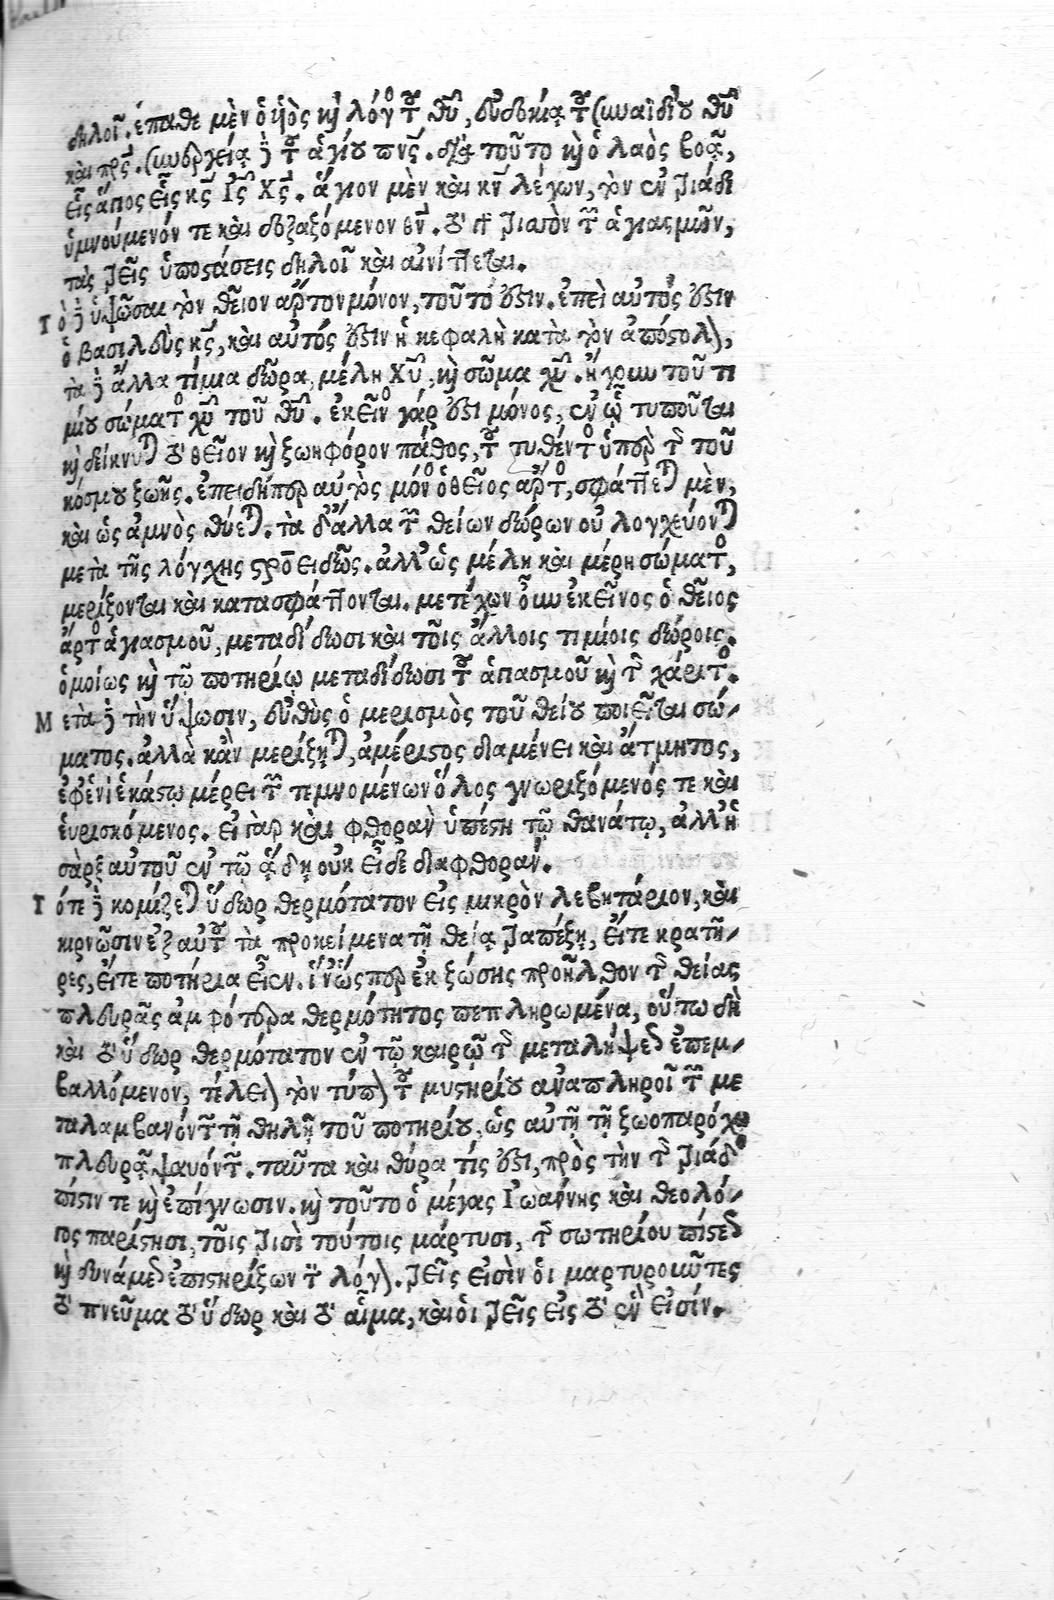 δηλοῖ. ἔπαθε μὲν ὁ υἱὸς καὶ λόγος τοῦ θυ, εὐδοκίᾳ τοῦ συναϊδίου θυ
καὶ πρς. συνεργείᾳ δὲ τοῦ ἁγίου πνς. διὰ τοῦτο καὶ ὁ λαὸς βοᾷ,
εἷς ἅγιος εἷς κς Ις Χς. ἅγιον μὲν καὶ κν λέγων, τὸν ἐν τριάδι
ὑμνούμενόν τε καὶ δοξαζόμενον θν. τὸ δὲ τρισσὸν τῶν ἁγιασμῶν,
τὰς τρεῖς ὑποστάσεις δηλοῖ καὶ αἰνίττεται.
Τὸ δὲ ὑψῶσαι τὸν θεῖον ἄρτον μόνον, τοῦτό ἐστιν. ἐπεὶ αὐτός ἐστιν
ὁ βασιλεὺς κς, καὶ αὐτός ἐστιν ἡ κεφαλὴ κατὰ τὸν ἀπόστολον,
τὰ δὲ ἄλλα τίμια δῶρα, μέλη Χυ, καὶ σῶμα χυ. ἤγουν τοῦ τι
μίου σώματος χυ τοῦ θυ. ἐκεῖνος γάρ ἐστι μόνος, ἐν ᾧ τυποῦται
καὶ δείκνυται τὸ θεῖον καὶ ζωηφόρον πάθος, τοῦ τυθέντος ὑπὲρ τῆς τοῦ
κόσμου ζωῆς. ἐπειδήπερ αὐτὸς μόνος ὁ θεῖος ἄρτος, σφάττεται μὲν,
καὶ ὡς ἀμνὸς θύεται. τὰ δ' ἄλλα τῶν θείων δώρων οὐ λογχεύονται
μετὰ τῆς λόγχης σροειδῶς. ἀλλ' ὡς μέλη καὶ μέρη σώματος,
μερίζονται καὶ κατασφάττονται. μετέχων οὖν ἐκεῖνος ὁ θεῖος
ἄρτος ἁγιασμοῦ, μεταδίδωσι καὶ τοῖς ἄλλοις τιμίοις δώροις.
ὁμοίως καὶ τῷ ποτηρίῳ μεταδίδωσι τοῦ ἁγιασμοῦ καὶ τῆς χάριτος.
Μετὰ δὲ τὴν ὕψωσιν, εὐθὺς ὁ μερισμὸς τοῦ θείου ποιεῖται σώ-
ματος. ἀλλὰ κἂν μερίζηται, ἀμέριστος διαμένει καὶ ἄτμητος,
ἐφ' ἑνὶ ἑκάστῳ μέρει τῶν τεμνομένων ὅλος γνωριζόμενός τε καὶ
εὑρισκόμενος. εἰ γὰρ καὶ φθορὰν ὑπέστη τῷ θανάτῳ, ἀλλ' ἡ
σὰρξ αὐτοῦ ἐν τῷ ᾅδῃ οὐκ εἶδε διαφθοράν.
Τότε δὲ κομίζεται ὕδωρ θερμότατον εἰς μικρὸν λεβητάριον, καὶ
κιρνῶσιν ἐξ αὐτοῦ τὰ προκείμενα τῇ θείᾳ τραπέζῃ, εἴτε κρατῆ-
ρες, εἴτε ποτήρια εἶεν. ἵν' ὥσπερ ἐκ ζώσης προῆλθον τῆς θείας
πλευρᾶς ἀμφότερα θερμότητος πεπληρωμένα, οὕτω δὴ
καὶ τὸ ὕδωρ θερμότατον ἐν τῷ καιρῷ τῆς μεταλήψεως ἐπεμ-
βαλλόμενον, τέλειον τὸν τύπον τοῦ μυστηρίου ἀναπληροῖ τῶν με
ταλαμβανόντων τῇ θηλῇ τοῦ ποτηρίου, ὡς αὐτῇ τῇ ζωοπαρόχῳ
πλευρᾷ ψαυόντων. ταῦτα καὶ θύρα τίς ἐστι, πρὸς τὴν τῆς τριάδος
πίστιν τε καὶ ἐπίγνωσιν. καὶ τοῦτο ὁ μέγας Ἰωάννης καὶ θεολό-
γος παρίστησι, τοῖς τρισὶ τούτοις μάρτυσι, τῆς σωτηρίου πίστεως
καὶ δυνάμεως ἐπιστηρίζων τὸν λόγον. τρεῖς εἰσὶν οἱ μαρτυροῦντες
τὸ πνεῦμα τὸ ὕδωρ καὶ τὸ αἷμα, καὶ οἱ τρεῖς εἰς τὸ ἕν εἰσίν.